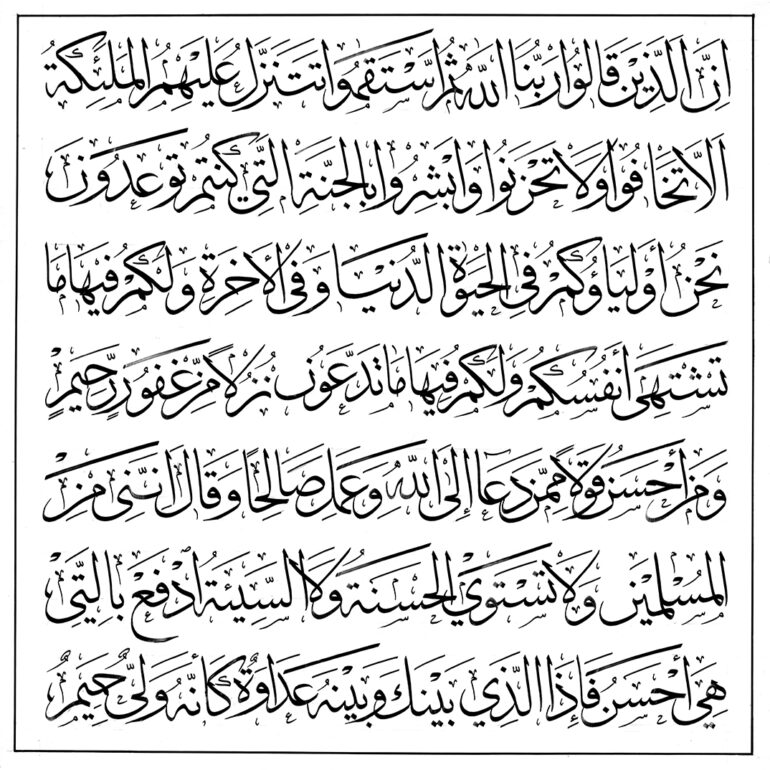 اِنَّ الَّذِيْنَ قَالُوْا رَبُّنَا اللّٰهُ ثُمَّ اسْتَقَمُوْا تَتَنَزَّلُ عَلَيْهِمُ الْمَلٰئِكَةُ
اَلَّا تَخَافُوْا وَلَا تَحْزَنُوْا وَابْشِرُوْا بِالْجَنَّةِ الَّتِيْ كُنْتُمْ تُوْعَدُوْنَ
نَحْنُ أَوْلِيَاؤُكُمْ فِي الْحَيٰوةِ الدُّنْيَا وَفِي الْاٰخِرَةِ وَلَكُمْ فِيْهَا مَا
تَشْتَهِيْ أَنْفُسُكُمْ وَلَكُمْ فِيْهَا مَا تَدَّعُوْنَ نُزُلًا مِّنْ غَفُوْرٍ رَّحِيْمٍ
وَمَنْ أَحْسَنُ قَوْلًا مِّمَّنْ دَعَآ اِلَى اللّٰهِ وَعَمِلَ صَالِحًا وَّقَالَ اِنَّنِيْ مِنَ
الْمُسْلِمِيْنَ وَلَا تَسْتَوِي الْحَسَنَةُ وَلَا السَّيِّئَةُ ادْفَعْ بِالَّتِيْ
هِيَ أَحْسَنُ فَإِذَا الَّذِي بَيْنَكَ وَبَيْنَهُ عَدَاوَةٌ كَأَنَّهُ وَلِيٌّ حَمِيْمٌ